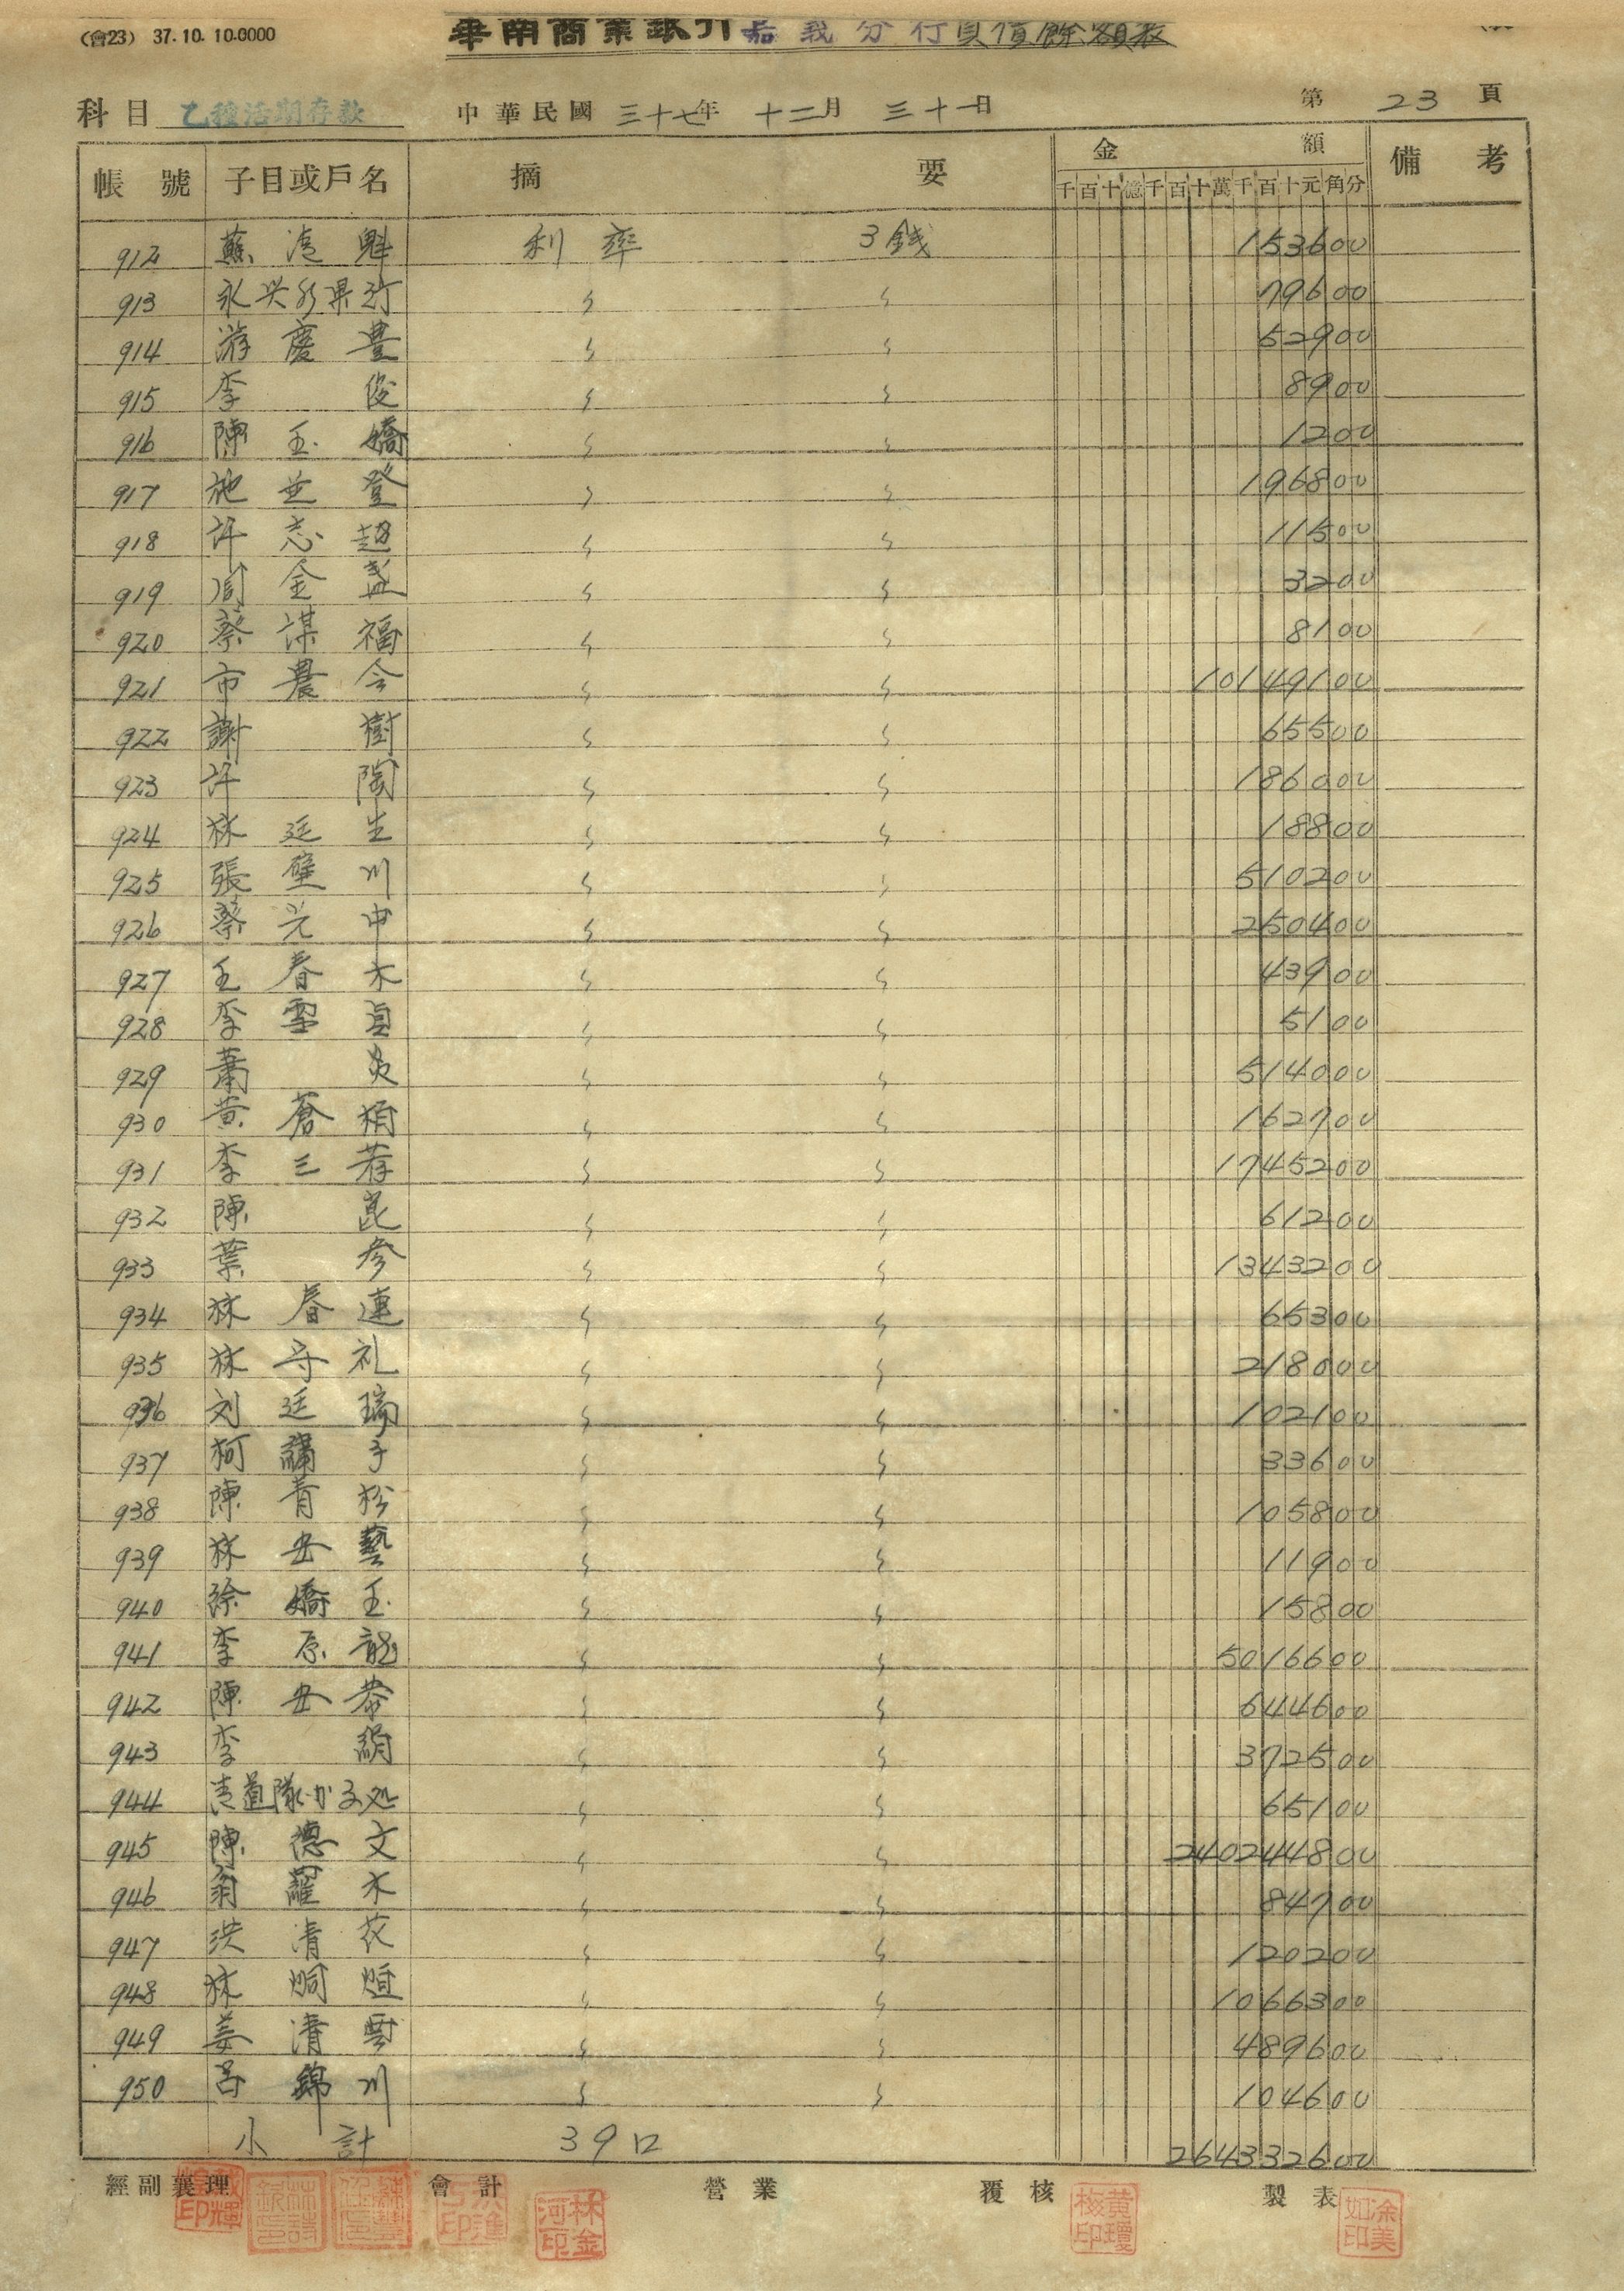 (會23) 37.10.10.6000
華南商業銀行嘉義分行負債餘額表
科目 乙種活期存款 中華民國三十七年十二月三十一日 第23頁
帳號 子目或戶名 摘要 金額 備考
千百十億千百十萬千百十元角分
912 蘇 魁 利率 3錢 153600
913 永兴 79600
914 游慶豊 〃 〃 52900
915 李俊 〃 〃 8900
916 陳玉嬌 〃 〃 1200
917 施並登 〃 〃 196800
918 許志超 〃 〃 11500
919 周金盛 〃 〃 3200
920 蔡謀福 〃 〃 8100
921 市農会 〃 〃 10149100
922 謝樹 〃 〃 65500
923 許陶 〃 〃 186000
924 林廷生 〃 〃 18800
925 張壁川 〃 〃 510200
926 蔡光中 〃 〃 250400
927 王春木 〃 〃 43900
928 李雪貞 〃 〃 5100
929 蕭炎 〃 〃 514000
930 黄蒼 〃 〃 162700
931 李三 〃 〃 1745200
932 陳崑 〃 〃 61200
933 葉参 〃 〃 1343200
934 林春連 〃 〃 66300
935 林守礼 〃 〃 218000
936 刘廷瑞 〃 〃 102100
937 柯 子 〃 〃 33600
938 陳青松 〃 〃 105800
939 林岳藝 〃 〃 11900
940 徐嬌玉 〃 〃 15800
941 李原龍 〃 〃 5016600
942 陳岳恭 〃 〃 644600
943 李絹 〃 〃 372500
944 清道隊 65100
945 陳德文 〃 〃 240244800
946 翁羅木 〃 〃 84700
947 洪清花 〃 〃 120200
948 林炯煌 〃 〃 1066300
949 姜清雲 〃 〃 489600
950 呂錦川 〃 〃 104600
小計 39口 264332600
經副襄理 會計 營業 覆核 製表
林金河印
黃瓊梅印
涂美如印